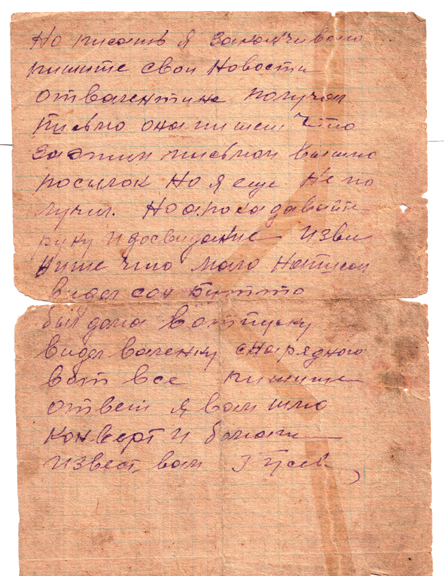 Но писать я заканчиваю
пишите свои новости
от валентине получил
письмо она пишет что
за этим писмом вышлю
посылок но я еще не по
лучил. Но а пока давайте
руку и досведание изви
ните что мало написал
видал сон будто
был дома в отпуску
видал валенку снарядного
вот все пишите
ответ я вам шлю
конверт и бумаги
извест. вам